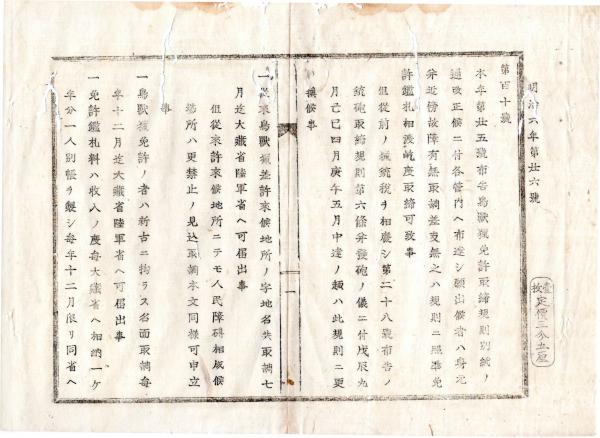 明治六年第廿六號
壹枚定價二分五厘
第百十號
本年第廿五號布告鳥獸獵免許取締規則別紙ノ
通改正候ニ付各管内ヘ布達シ願出候者ハ身元
并近傍故障有無取調差支無之ハ規則ニ照準免
許鑑札相渡屹度取締可致事
但從前ノ
銃砲取締規則第六條并發砲ノ儀ニ付戊辰九
月己巳四月庚午五月中達ノ類ハ此規則ニ更
換候事
一從來鳥獸獵差許來候地所ノ字地名失取調七
月迄大藏省陸軍省ヘ可届出事
但從來許來候地所ニテモ人民障碍相成候
場所ハ更禁止ノ見込取調本文同樣可申立
事
一鳥獸獵免許ノ者ハ新古ニ拘ラス名面取調每
年十二月迄大藏省陸軍省ヘ可届出事
一免許鑑札料ハ收入ノ度每大藏省ヘ相納一ケ
年分一人別帳ヲ製シ每年十二月限リ同省ヘ